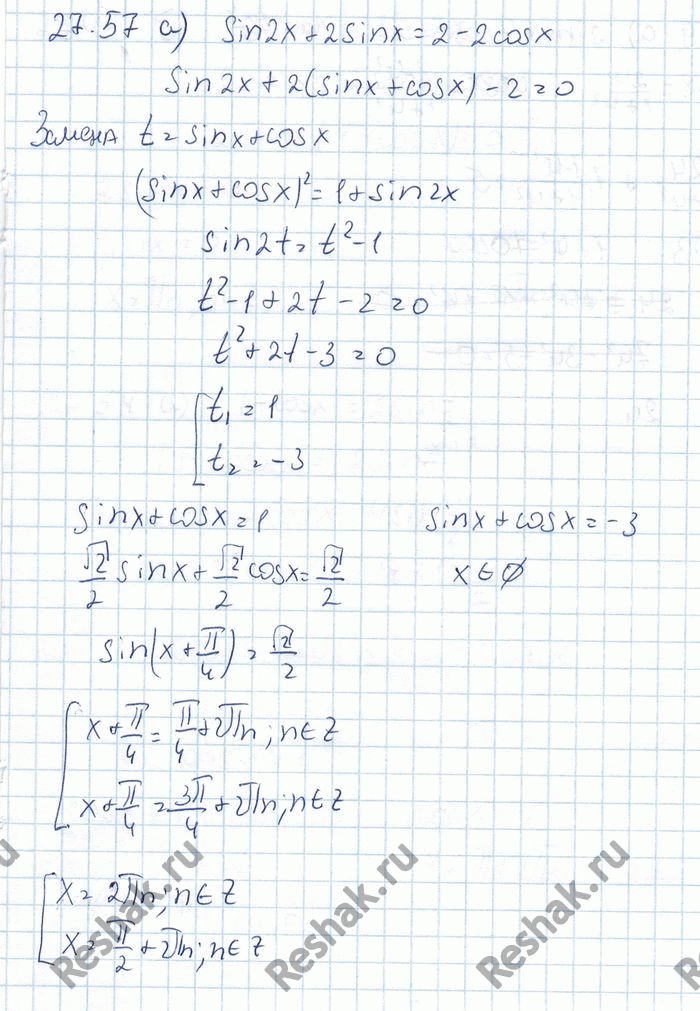 27.57 а) sin2x+2sinx=2-2cosx
sin2x+2(sinx+cosx)-2=0
Замена t=sinx+cosx
(sinx+cosx)²=1+sin2x
sin2t=t²-1
t²-1+2t-2=0
t²+2t-3=0
[t₁=1
t₂=-3
sinx+cosx=1
√2/2 sinx+√2/2 cosx=√2/2
sin(x+π/4)=√2/2
sinx+cosx=-3
x∈∅
[x+π/4=π/4+2πn; n∈Z
x+π/4=3π/4+2πn; n∈Z
[x=2πn; n∈Z
x=π/2+2πn; n∈Z
Reshak.ru
Reshak.ru